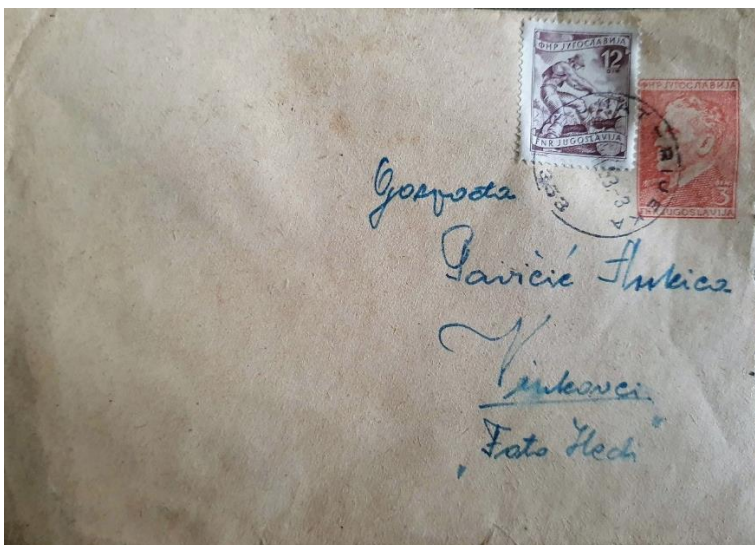 ФНР ЈУГОСЛАВИЈА
12
DIN
FNR JUGOSLAVIJA
ФНР ЈУГОСЛАВИЈА
3
FNR JUGOSLAVIJA
RIJEKA
353
Gospođa
Pavičić Ankica
Vinkovci
„Foto Hedi"